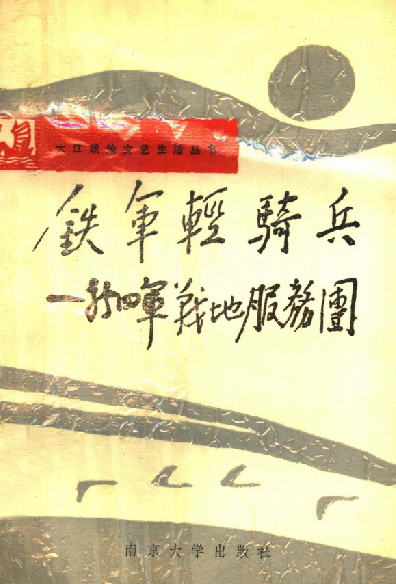 大江战地文艺生活丛书
鉄軍輕騎兵
—新四軍战地服務團
南京大学出版社